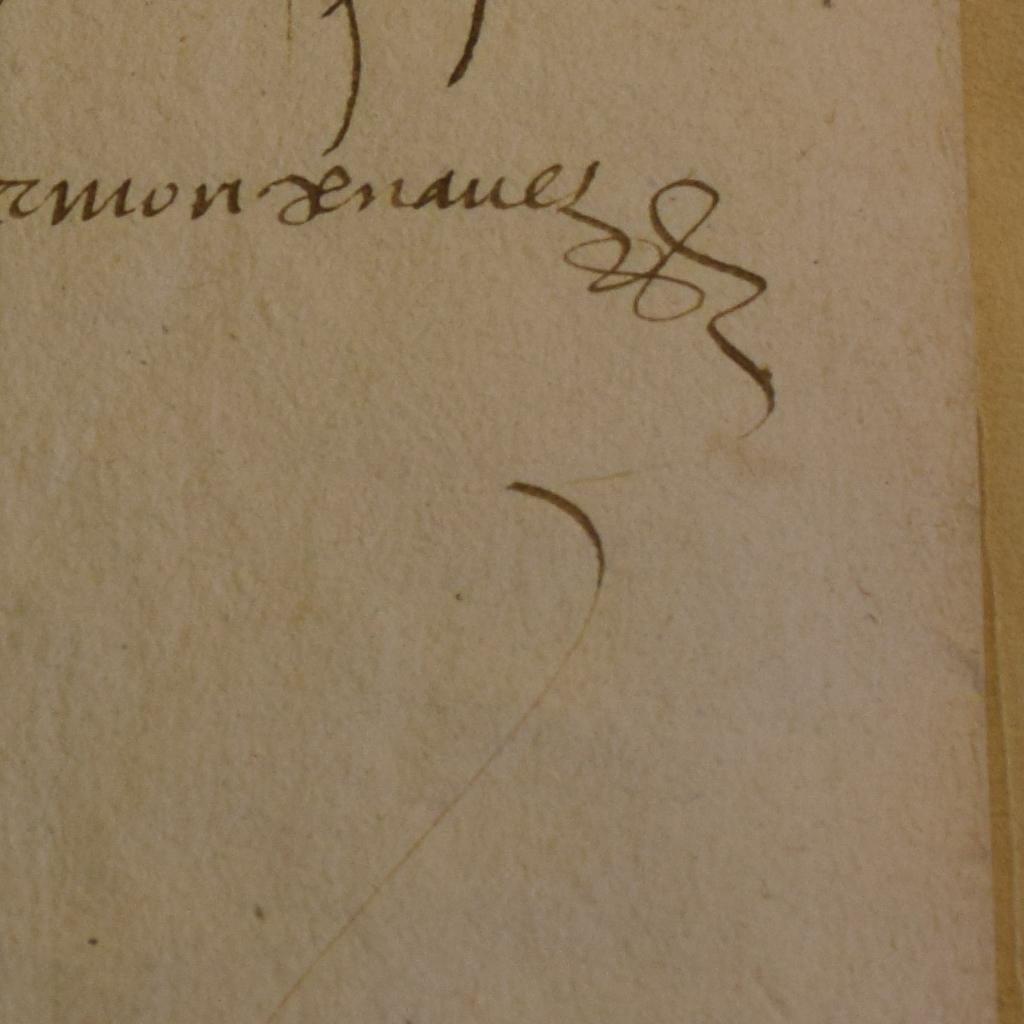 rmon de naues